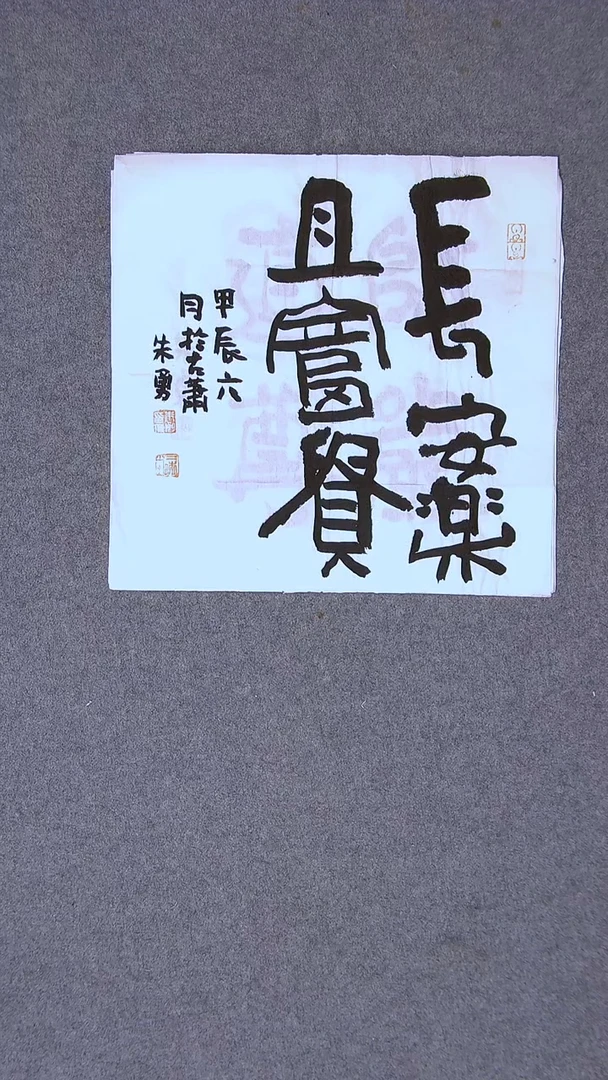 長安樂
且富貴
甲辰六
月於古蕭
朱勇